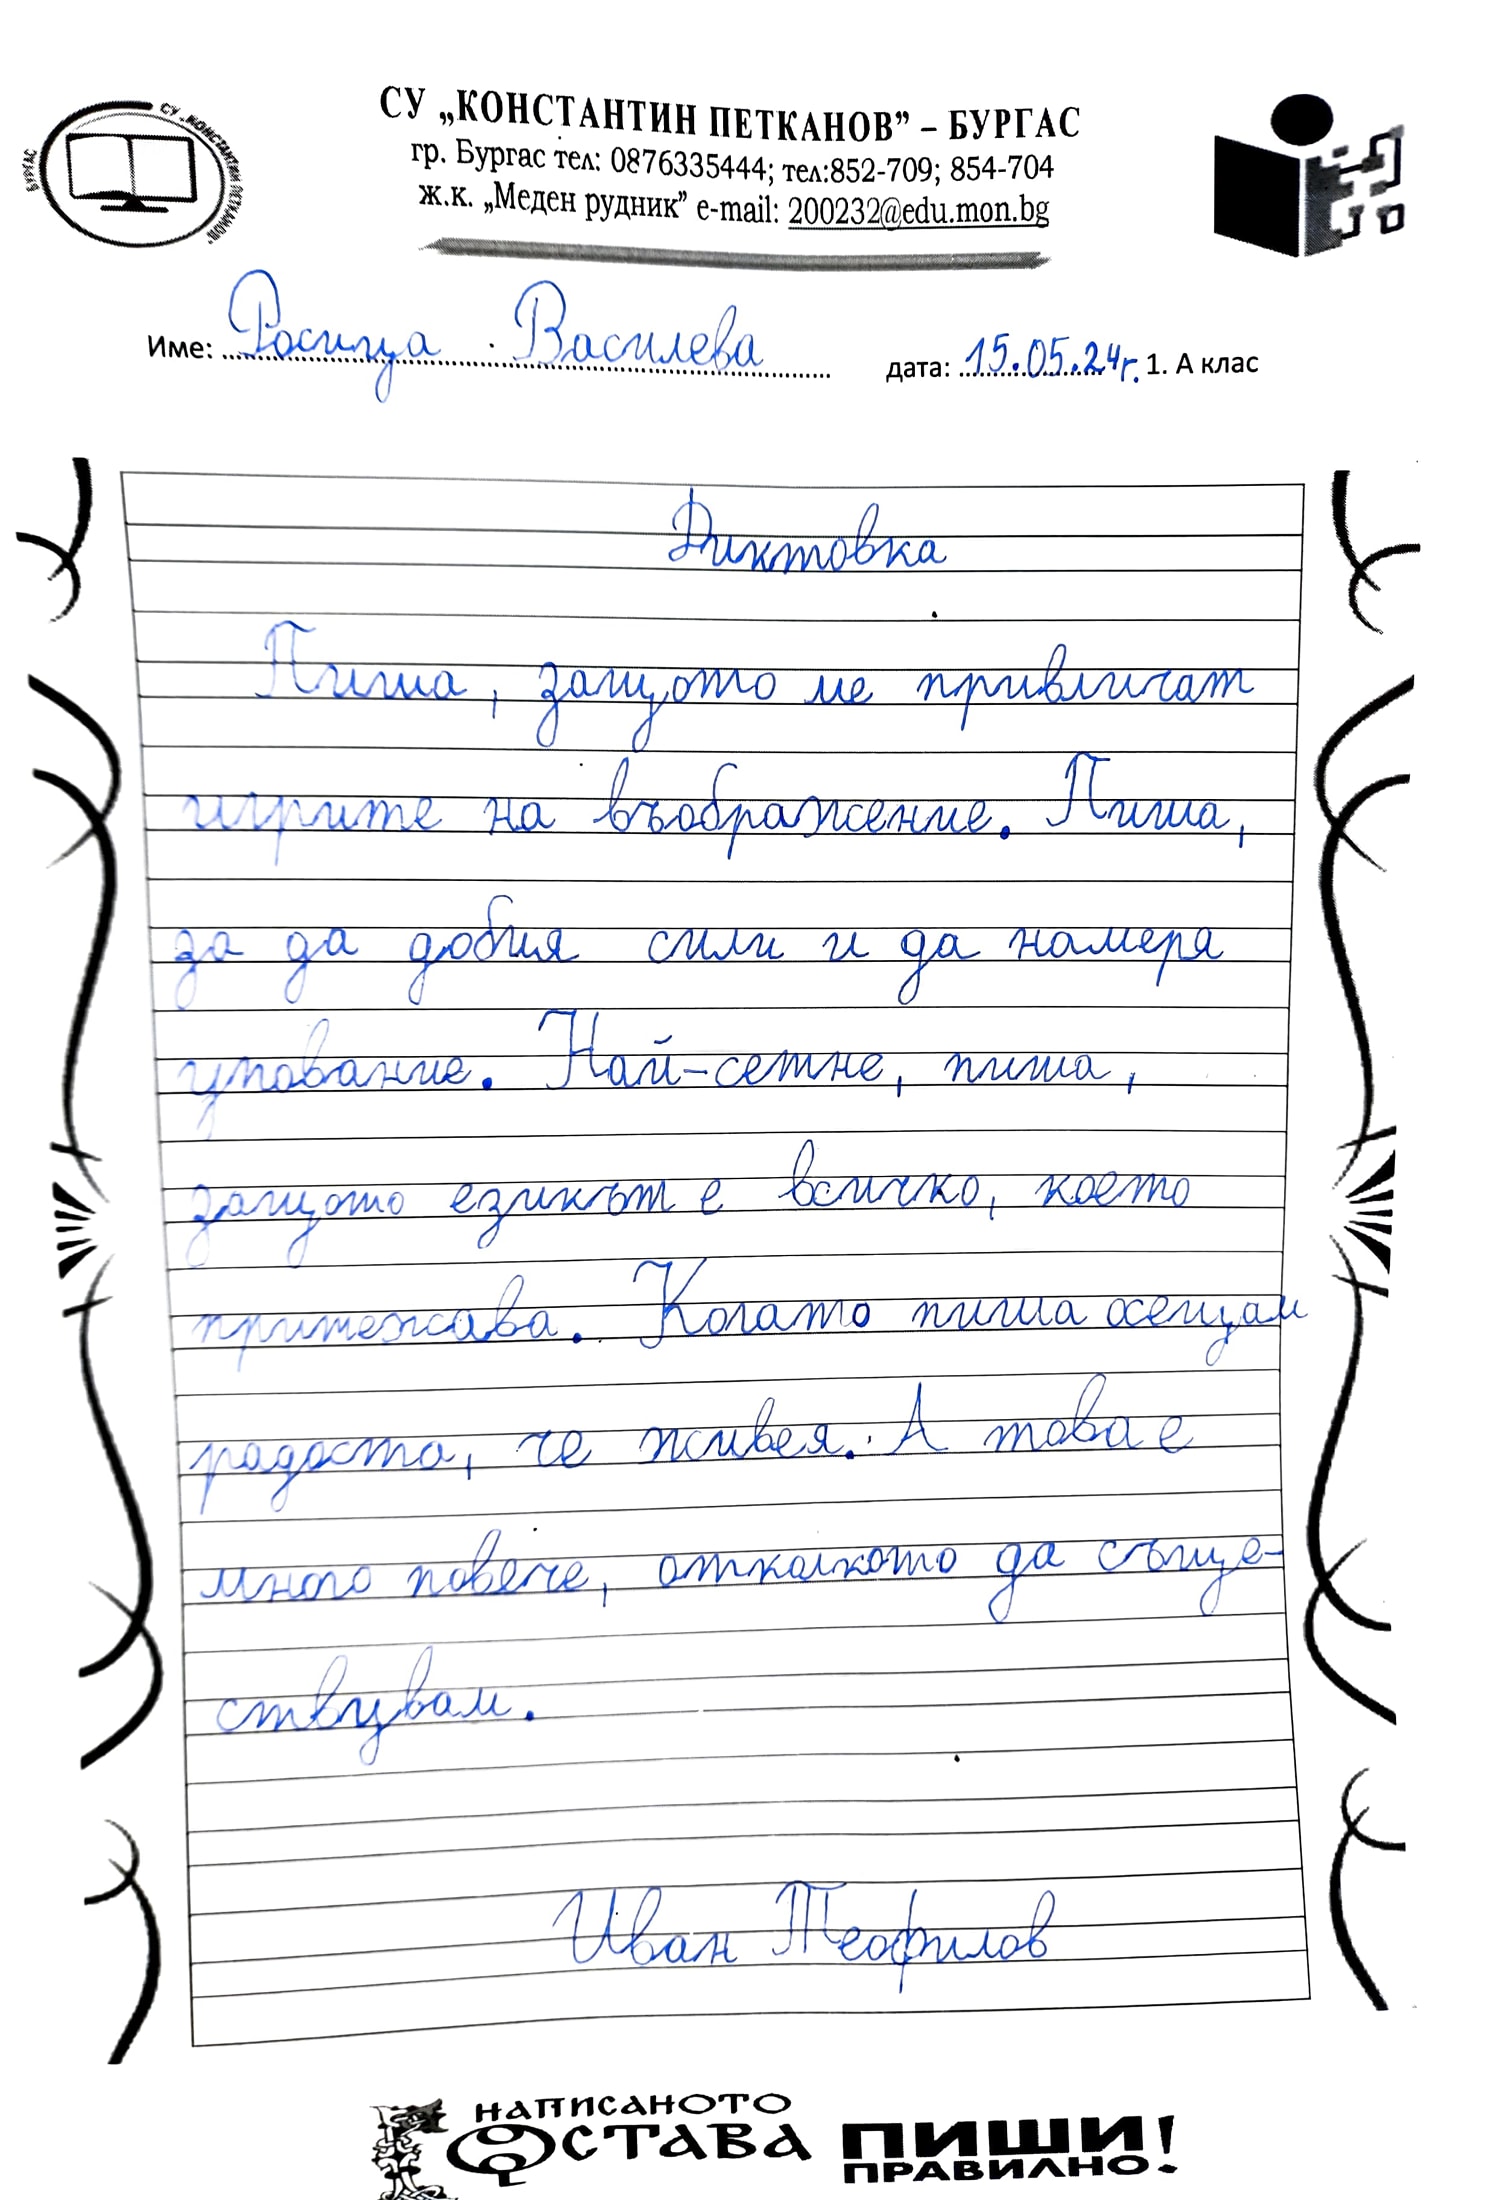 СУ „КОНСТАНТИН ПЕТКАНОВ” – БУРГАС
гр. Бургас тел: 0876335444; тел:852-709; 854-704
ж.к. „Меден рудник” e-mail: 200232@edu.mon.bg
БУРГАС
СУ „КОНСТАНТИН ПЕТКАНОВ"
Име: Росица Василева дата: 15.05.24г. 1. А клас
Диктовка
Пиша, защото ме привличат
игрите на въображение. Пиша,
за да добия сили и да намеря
упование. Най-сетне, пиша,
защото езикът е всичко, което
притежава. Когато пиша осещам
радоста, че живея. А това е
много повече, отколкото да съще-
ствувам.
Иван Теофилов
НАПИСАНОТО
ОСТАВА ПИШИ
ПРАВИЛНО!